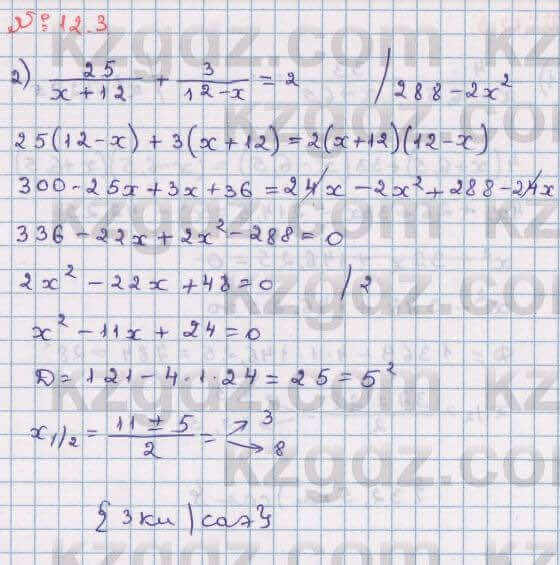 № 12.3
2) 25/(x+12) + 3/(12-x) = 2 / 288-2x²
25(12-x) + 3(x+12) = 2(x+12)(12-x)
300-25x+3x+36 = 24x - 2x² + 288-24x
336-22x+2x²-288=0
2x²-22x+48=0 /2
x²-11x+24=0
D=121-4·1·24=25=5²
x₁/₂ = (11±5)/2 = → 3
→ 8
{3км/саг}
kzgdz.com